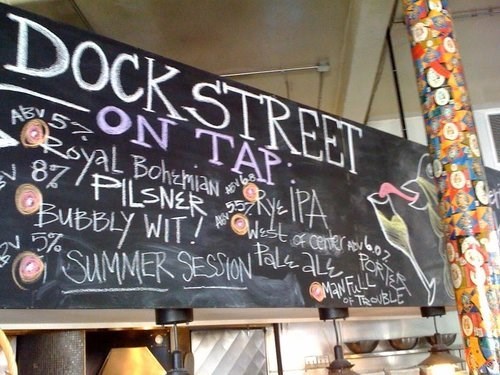 DOCK STREET
ON TAP.
ABV 5%
ROYAL BOHEMIAN
PILSNER
8%
BUBBLY WIT!
ABV 5%
SUMMER SESSION
ABV 6.8%
RYE IPA
ABV 5.5%
WEST OF CENTER
PALE ALE
ABV 6.0%
MAN FULL
OF TROUBLE
PORTER